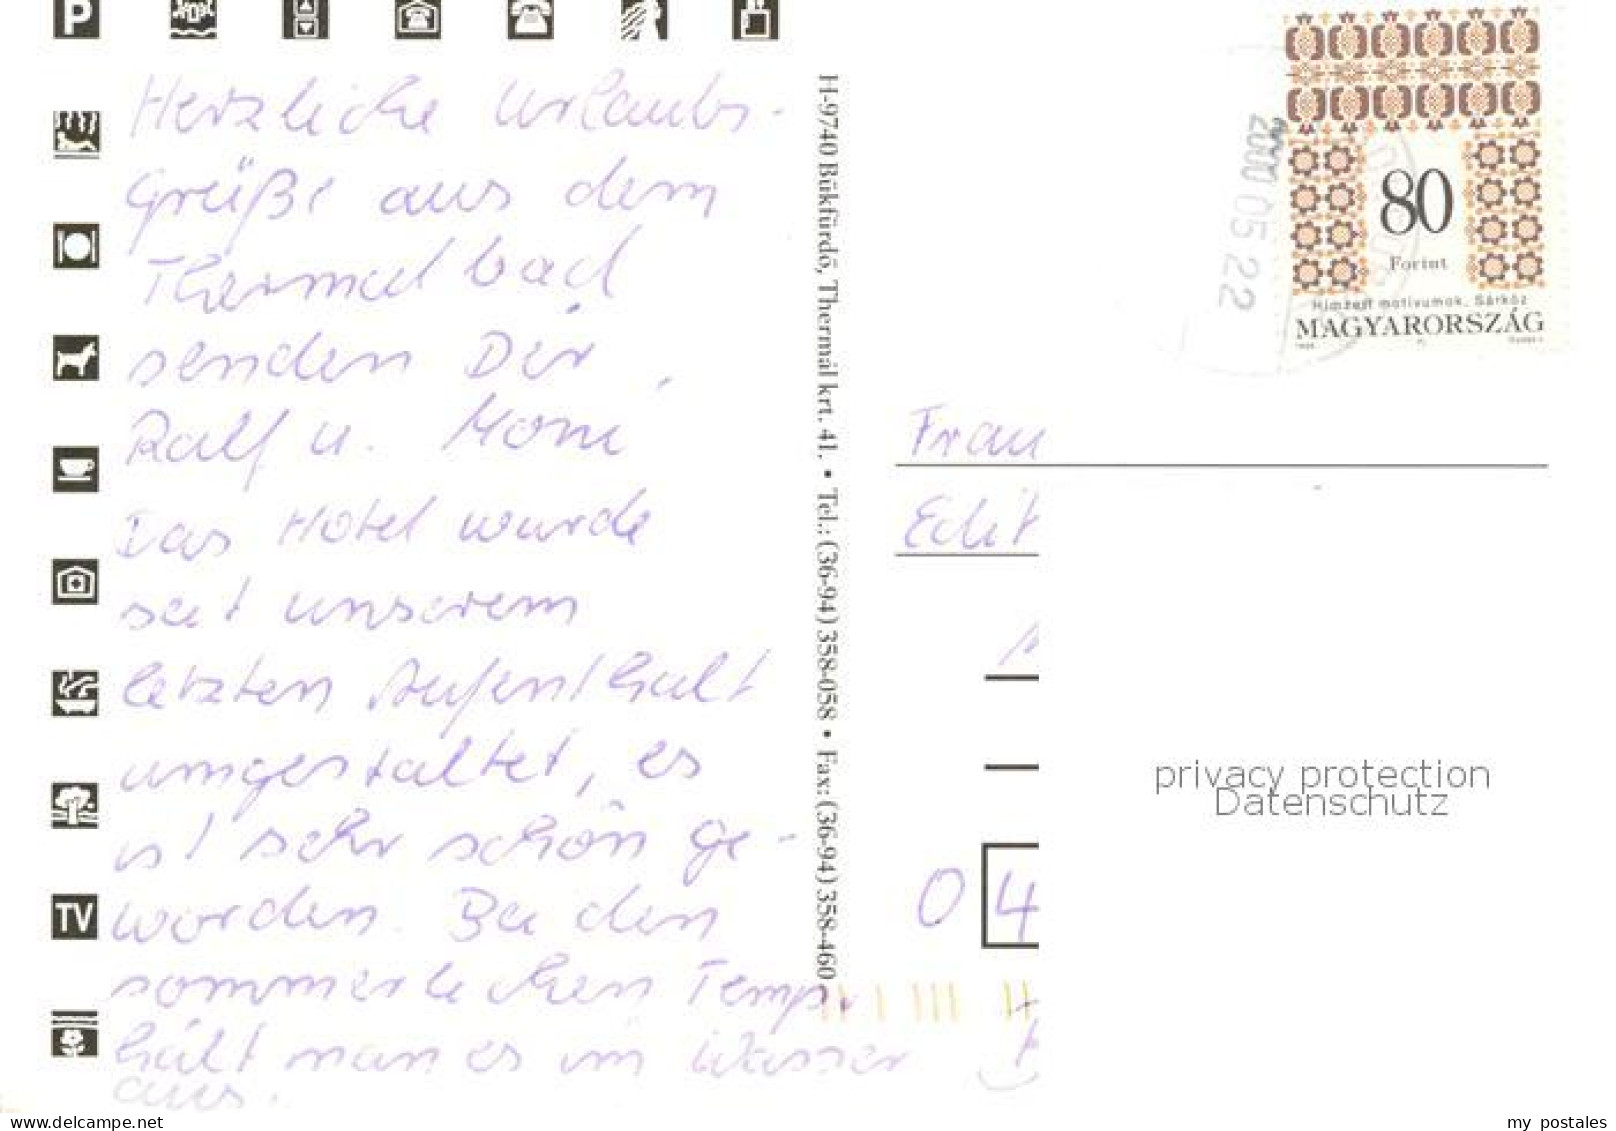 P
TV
Herzliche Urlaubs-
Grüße aus dem
Thermalbad
senden Dir,
Ralf u. Moni
Das Hotel wurde
seit unserem
letzten Aufenthalt
umgestaltet, es
ist sehr schön ge-
worden. Bei den
sommerlichen Temp.
hält man es im Wasser
aus.
H-9740 Bükfürdő, Thermál krt. 41. • Tel.: (36-94) 358-058 • Fax: (36-94) 358-460
2000 05 22
80
Forint
Hímzett motívumok, Sárköz
MAGYARORSZÁG
Frau
Edit
privacy protection
Datenschutz
0 4
www.delcampe.net
my_postales